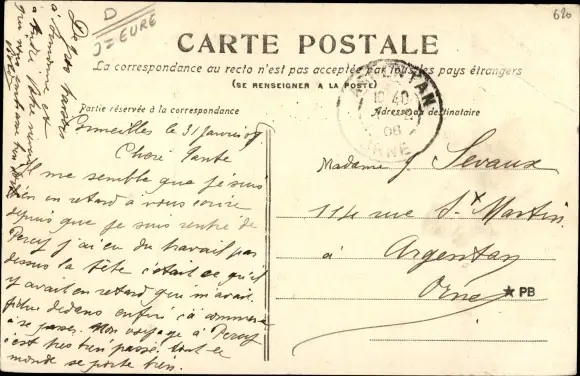 620
D
J=EURE
CARTE POSTALE
La correspondance au recto n'est pas acceptée par tous les pays étrangers
(SE RENSEIGNER A LA POSTE)
Partie réservée à la correspondance
Adresse du destinataire
ARGENTAN
10 40
08
ORNE
Cormeilles le 31 Janvier 08
Chère Tante
Il me semble que je suis
bien en retard à vous écrire
depuis que je suis rentré de
Percy j'ai eu du travail pas
dessus la tête c'était ce qu'il
y avait en retard qui m'avait
dedans enfin ça commence
à se passer. Mon voyage à Percy
c'est très bien passé. tout le
monde se porte bien.
De gros baisers
à
à André. Votre neveu
qui vous embrasse bien
Madame Vve Sevaux
114 rue St Martin
à Argentan
Orne
★ PB